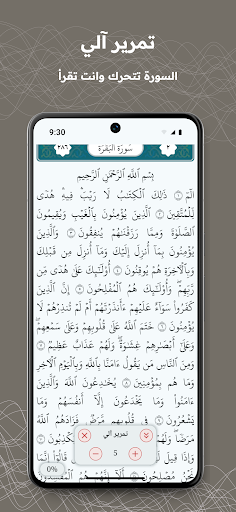 تمرير آلي
السورة تتحرك وانت تقرأ
9:30
٢٨٦ سُورَةُ البَقَرَةِ ٢
بِسْمِ ٱللَّهِ ٱلرَّحْمَٰنِ ٱلرَّحِيمِ
الٓمٓ ۝١ ذَٰلِكَ ٱلْكِتَٰبُ لَا رَيْبَ ۛ فِيهِ ۛ هُدًى
لِّلْمُتَّقِينَ ۝٢ ٱلَّذِينَ يُؤْمِنُونَ بِٱلْغَيْبِ وَيُقِيمُونَ
ٱلصَّلَوٰةَ وَمِمَّا رَزَقْنَٰهُمْ يُنفِقُونَ ۝٣ وَٱلَّذِينَ
يُؤْمِنُونَ بِمَآ أُنزِلَ إِلَيْكَ وَمَآ أُنزِلَ مِن قَبْلِكَ
وَبِٱلْءَاخِرَةِ هُمْ يُوقِنُونَ ۝٤ أُو۟لَٰٓئِكَ عَلَىٰ هُدًى مِّن
رَّبِّهِمْ ۖ وَأُو۟لَٰٓئِكَ هُمُ ٱلْمُفْلِحُونَ ۝٥ إِنَّ ٱلَّذِينَ
كَفَرُوا۟ سَوَآءٌ عَلَيْهِمْ ءَأَنذَرْتَهُمْ أَمْ لَمْ تُنذِرْهُمْ لَا
يُؤْمِنُونَ ۝٦ خَتَمَ ٱللَّهُ عَلَىٰ قُلُوبِهِمْ وَعَلَىٰ سَمْعِهِمْ ۖ
وَعَلَىٰٓ أَبْصَٰرِهِمْ غِشَٰوَةٌ ۖ وَلَهُمْ عَذَابٌ عَظِيمٌ ۝٧
وَمِنَ ٱلنَّاسِ مَن يَقُولُ ءَامَنَّا بِٱللَّهِ وَبِٱلْيَوْمِ ٱلْءَاخِرِ
وَمَا هُم بِمُؤْمِنِينَ ۝٨ يُخَٰدِعُونَ ٱللَّهَ وَٱلَّذِينَ
ءَامَنُوا۟ وَمَا يَخْدَعُونَ إِلَّآ أَنفُسَهُمْ وَمَا
يَشْعُرُونَ ۝٩ فِى قُلُوبِهِم مَّرَضٌ فَزَادَهُمُ ٱللَّهُ
تمرير آلي
5
0%